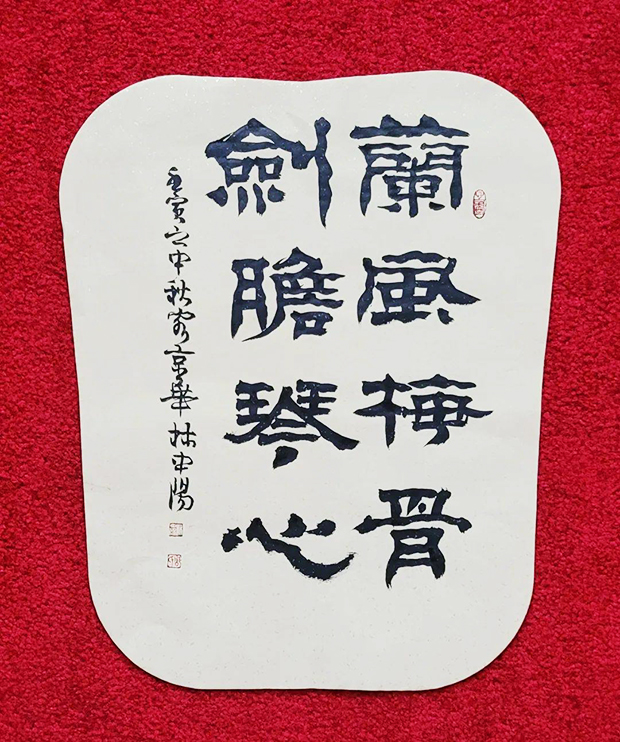 蘭風梅骨
劍膽琴心
壬寅之中秋寄京華林中陽